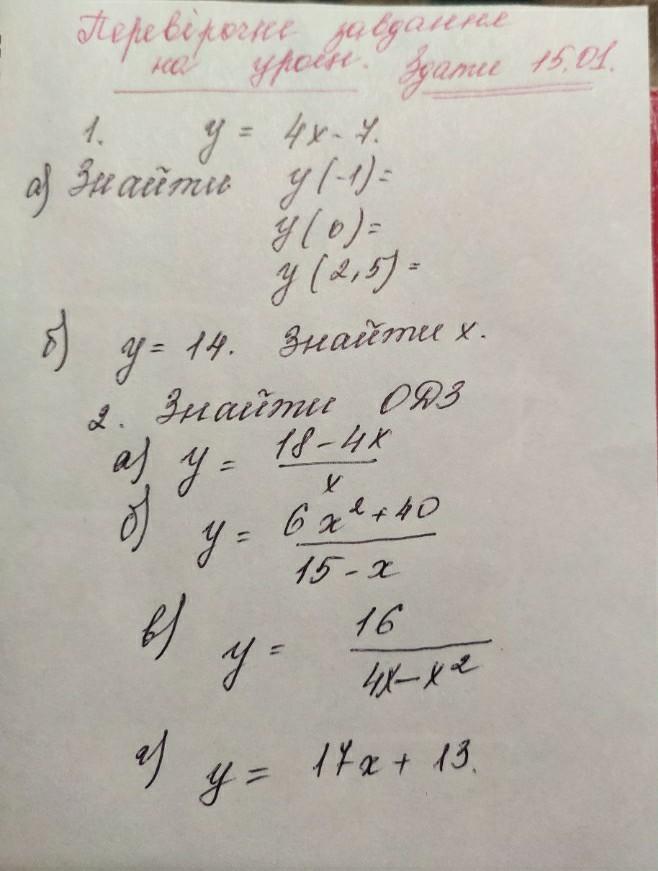 Перевірочне завдання
на уроці. Здати 15.01.
1. y = 4x - 7.
а) Знайти y(-1)=
y(0)=
y(2,5)=
б) y = 14. Знайти x.
2. Знайти ОДЗ
а) y = \frac{18-4x}{x}
б) y = \frac{6x²+40}{15-x}
в) y = \frac{16}{4x-x²}
г) y = 17x + 13.